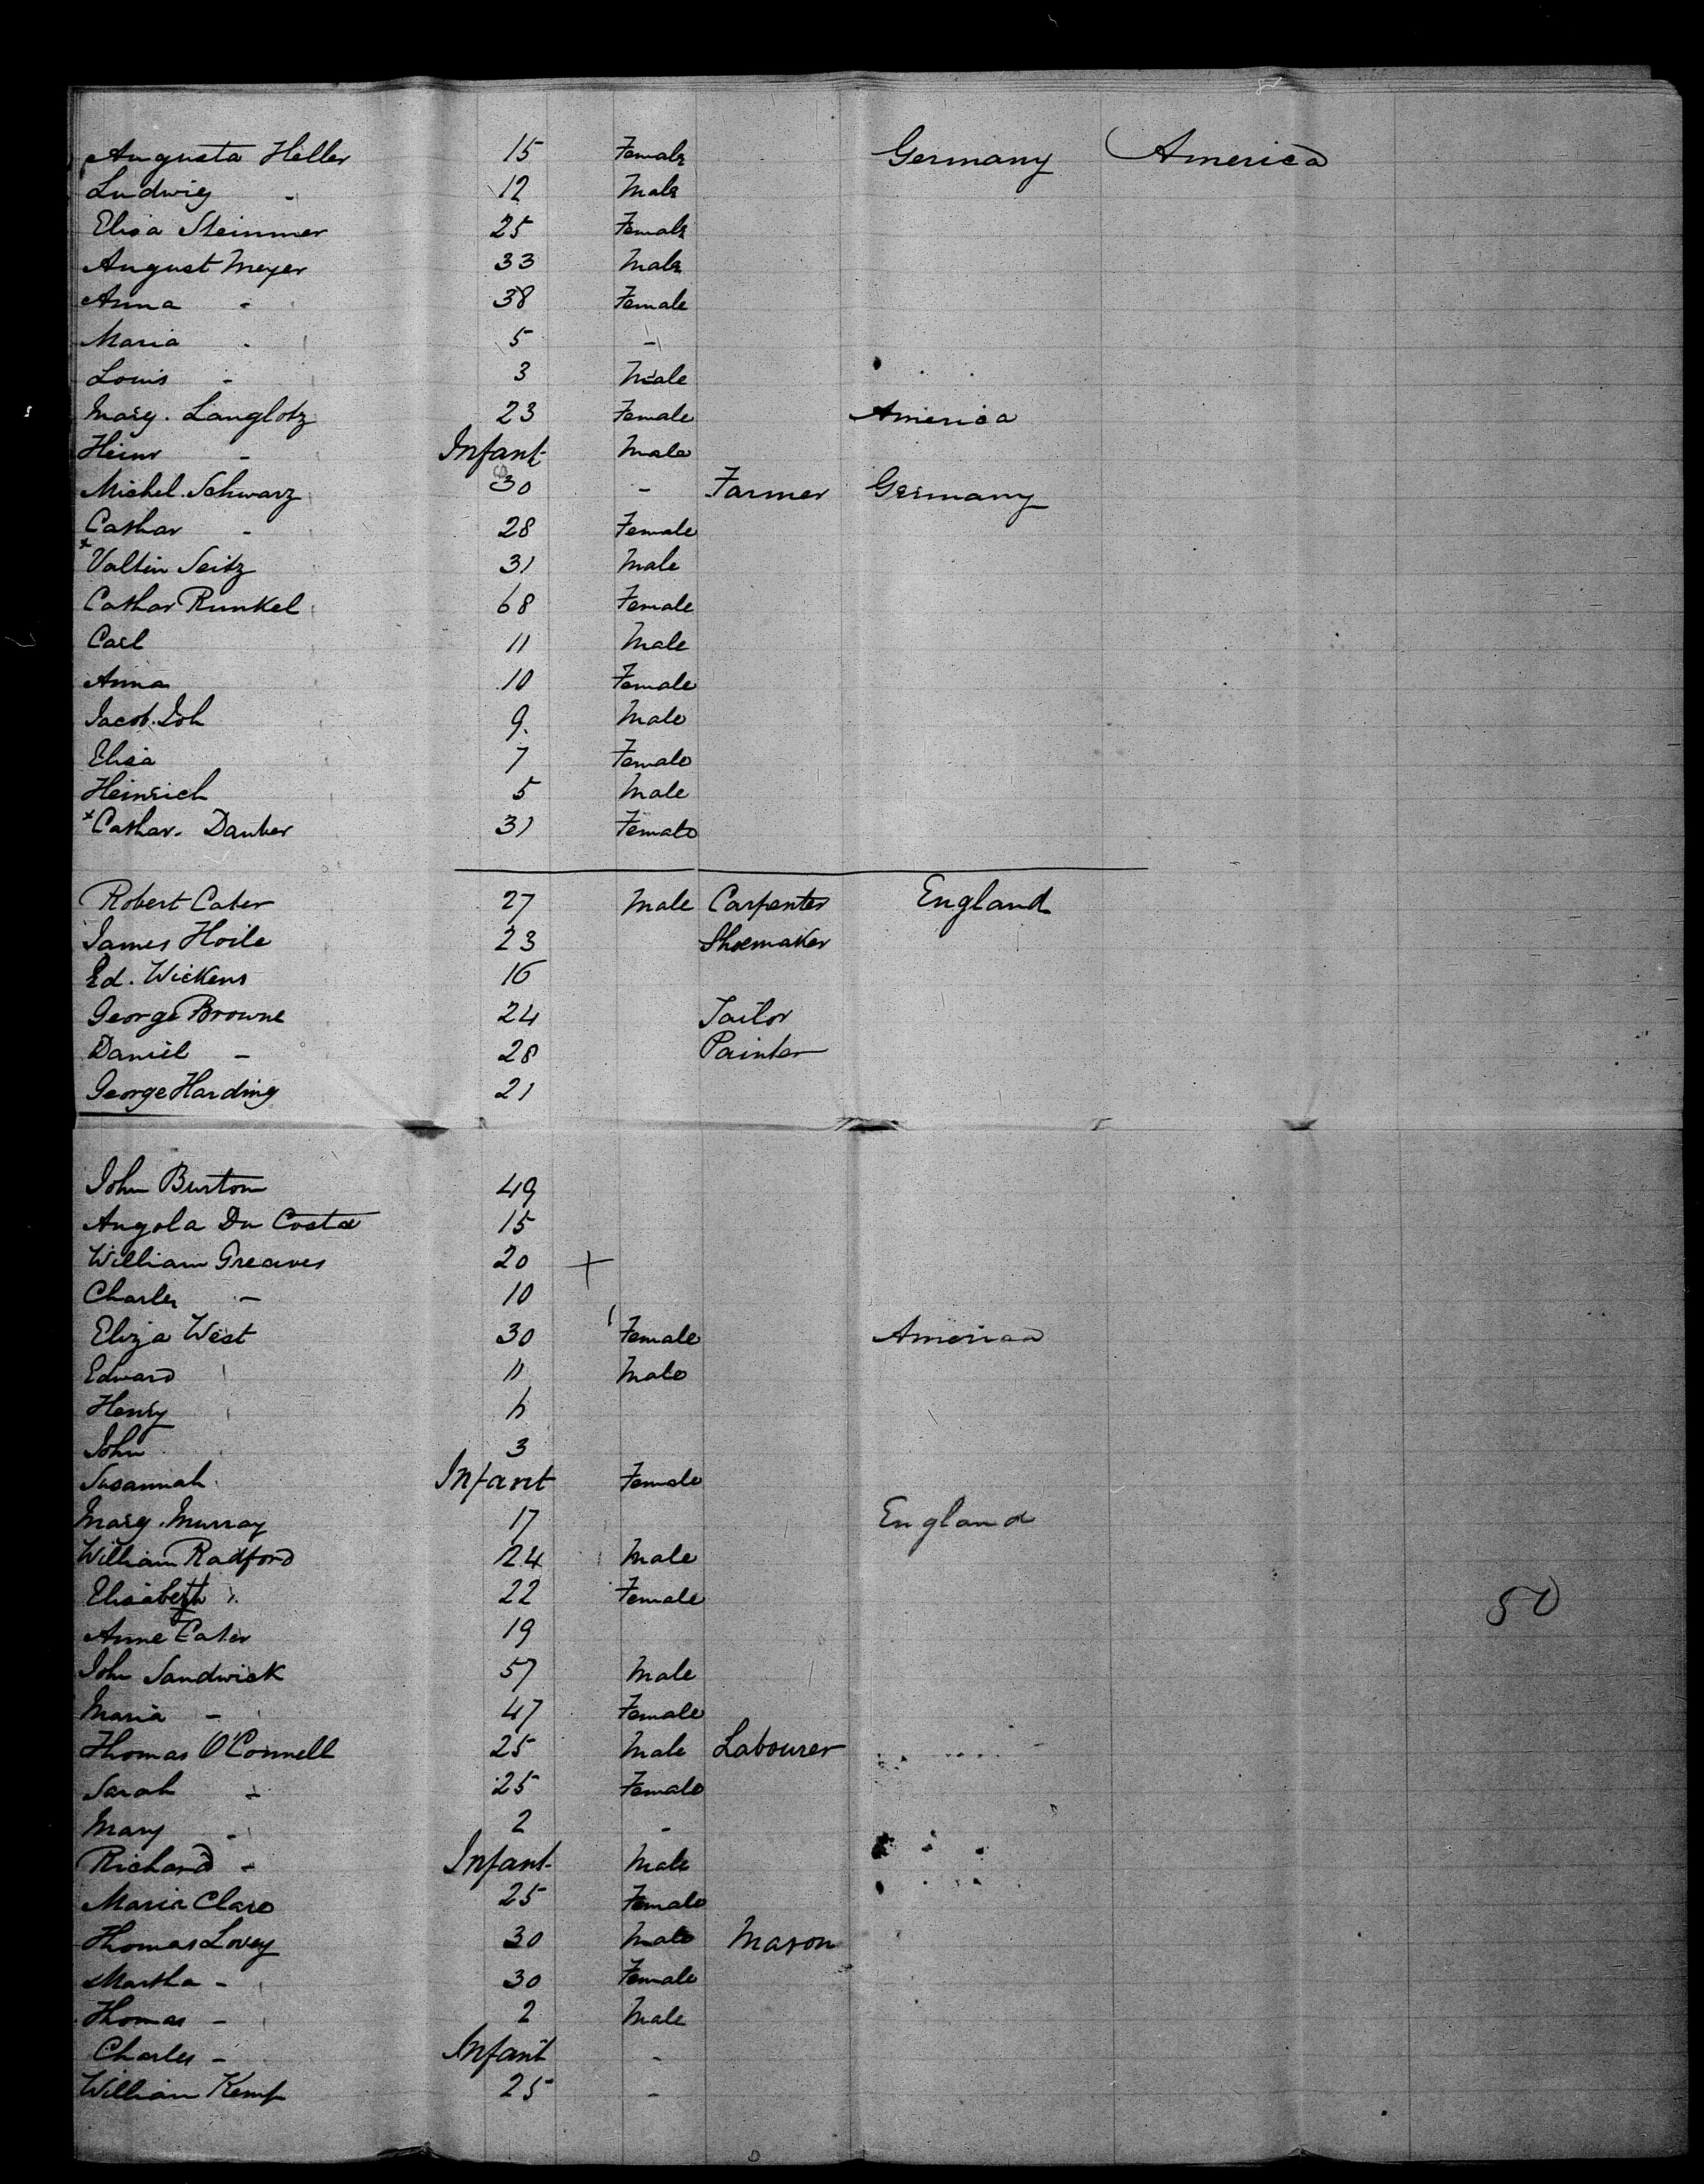 Augusta Heller 15 Female Germany America
Ludwig - 12 Male
Elisa Steinmer 25 Female
August Meyer 33 Male
Anna - 38 Female
Maria - 5 -
Louis - 3 Male
Marg. Langlotz 23 Female America
Heinr - Infant Male
Michel. Schwarz 30 - Farmer Germany
Cathar - 28 Female
x Valtin Seitz 31 Male
Cathar Runkel 68 Female
Carl 11 Male
Anna 10 Female
Jacob. Joh 9 Male
Elisa 7 Female
Heinrich 5 Male
x Cathar. Dauber 31 Female
Robert Cater 27 Male Carpenter England
James Hoile 23 Shoemaker
Ed. Wickens 16
George Browne 24 Tailor
Daniel - 28 Painter
George Harding 21
John Burton 49
Angola Du Costa 15
William Greaves 20 +
Charles - 10
Eliza West 30 Female America
Edward 11 Male
Henry
John 3
Susannah Infant Female
Marg. Murray 17 England
William Radford 24 Male
Elisabeth 22 Female 50
Anne Cater 19
John Sandwick 57 Male
Maria - 47 Female
Thomas O'Connell 25 Male Labourer
Sarah - 25 Female
Mary - 2 -
Richard - Infant Male
Maria Clare 25 Female
Thomas Lovey 30 Male Mason
Martha - 30 Female
Thomas - 2 Male
Charles - Infant -
William Kemp 25 -